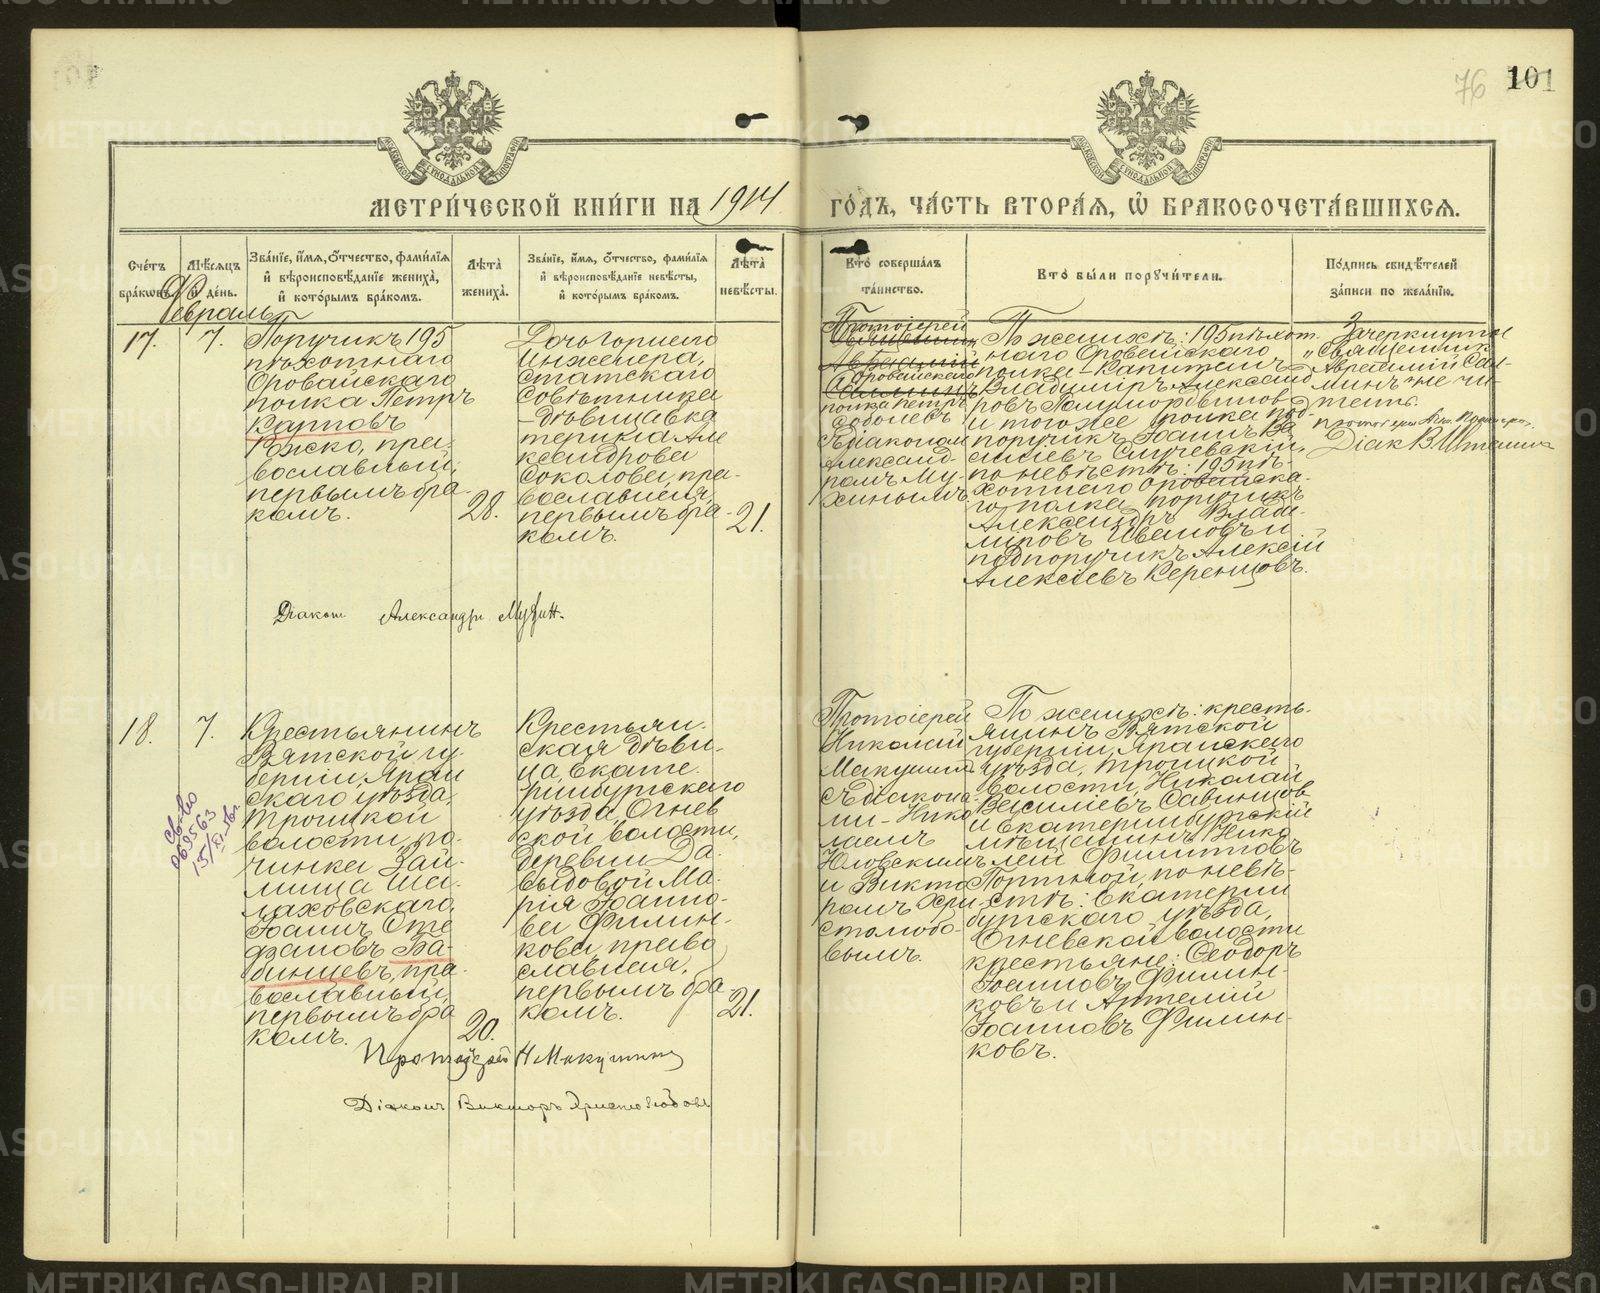 76 101
МЕТРИ́ЧЕСКОЙ КНИ́ГИ НА 1914 ГО́ДЪ, ЧА́СТЬ ВТОРА́Я, Ѡ҆ БРАКОСОЧЕТА́ВШИХСЯ.
Сче́тъ браковъ.
Мѣ́сяцъ и де́нь.
Зва́нїе, и҆́мя, ѻ҆́тчество, фами́лїя и҆ вѣроисповѣ́данїе жениха̀, и҆ кото́рымъ бра́комъ.
Лѣта̀ жениха̀.
Зва́нїе, и҆́мя, ѻ҆́тчество, фами́лїя и҆ вѣроисповѣ́данїе невѣ́сты, и҆ кото́рымъ бра́комъ.
Лѣта̀ невѣ́сты.
Кто̀ соверша́лъ та́инство.
Кто̀ бы́ли поручи́тели.
По́дпись свидѣ́телей за́писи по жела́нїю.
Февраль
17.
7.
Поручикъ 195
пѣхотнаго
Оровайскаго
полка Петръ
Карповъ
православный,
первымъ бра-
комъ.
28.
Дочь Горнаго
Инженера,
Статскаго
Совѣтника
- дѣвица Ека
терина Але
ксандрова
Соколова, пра-
вославная,
первымъ бра-
комъ.
21.
Протоіерей
Священник
Авраамій
Оровайскаго
полка Петръ
Соболевъ
съ діаконом
Александ-
ромъ Му-
хинымъ.
По женихѣ: 195 пѣхот
наго Оровайскаго
полка - Капитанъ
Владиміръ Александ
ровъ Полумордвинов
и того же полка под-
поручикъ Іоаннъ Ва
сильевъ Случевскій,
по невѣстѣ: 195 пѣ-
хотнаго Оровайска-
го полка поручикъ
Александръ Влади-
міровъ Ивановъ и
подпоручикъ Алексій
Алексіевъ Керенцовъ.
Зачеркнуты
"Священник
Авраамій Сал-
минъ" не чи-
тать.
Діаконъ Александръ Мухинъ.
18.
7.
Крестьянинъ
Вятской гу
берніи, Яран
скаго уѣзда,
Троицкой
волости, по-
чинка Зай-
мища Ша-
лаховскаго,
Іоаннъ Сте
фановъ Ба-
бинцевъ, пра-
вославный,
первымъ бра
комъ.
20.
Крестьян-
ская дѣви-
ца, Екате-
ринбургскаго
уѣзда, Огнев
ской волости,
деревни Да-
выдовой Ма-
рія Іоанно-
ва Филин-
кова, право
славная,
первымъ бра-
комъ.
21.
Протоіерей
Николай
Макушинъ
съ діакона-
ми - Нико
лаемъ
Юловскимъ
и Викто-
ромъ Хри-
столюбо-
вымъ.
По женихѣ: кресть-
янинъ Вятской
губерніи, Яранскаго
уѣзда, Троицкой
волости, Николай
Василіевъ Савинцов
и Екатеринбургскій
мѣщанинъ Нико
лай Филипповъ
Портной, по невѣ-
стѣ: Екатерин
бургскаго уѣзда,
Огневской волости
крестьяне: Ѳеодоръ
Іоанновъ Филин-
ковъ и Артемій
Іоанновъ Филин-
ковъ.
Протоіерей Н Макушинъ
Діаконъ Викторъ Христолюбовъ
METRIKI.GASO-URAL.RU